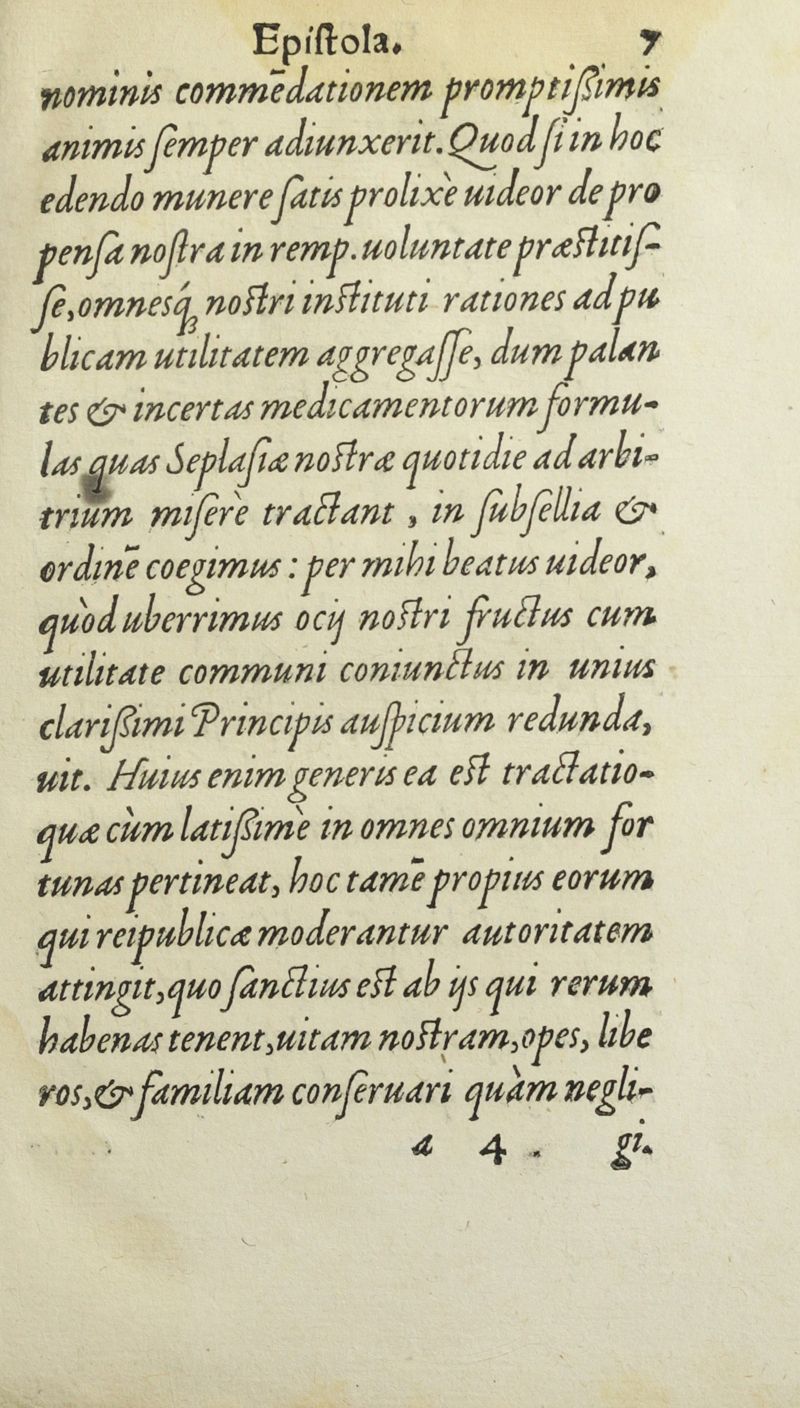 Epiſtola. 7
nominis commēdationem promptiſſimis
animis ſemper adiunxerit. Quod ſi in hoc
edendo munere ſatis prolixè uideor de pro
penſa noſtra in remp. uoluntate præſtitiſ-
ſe, omnesq́ꝫ noſtri inſtituti rationes ad pu
blicam utilitatem aggregaſſe, dum palan
tes & incertas medicamentorum formu-
las quas Seplaſiæ noſtræ quotidie ad arbi-
trium miſerè tractant, in ſubſellia &
ordinē coegimus: per mihi beatus uideor,
quòd uberrimus ocij noſtri fructus cum
utilitate communi coniunctus in unius
clariſſimi Principis auſpicium redunda,
uit. Huius enim generis ea eſt tractatio-
quæ cùm latiſſimè in omnes omnium for
tunas pertineat, hoc tamē propius eorum
qui reipublicæ moderantur autoritatem
attingit, quo ſanctius eſt ab ijs qui rerum
habenas tenent, uitam noſtram, opes, libe
ros, & familiam conſeruari quàm negli-
a 4. gi.